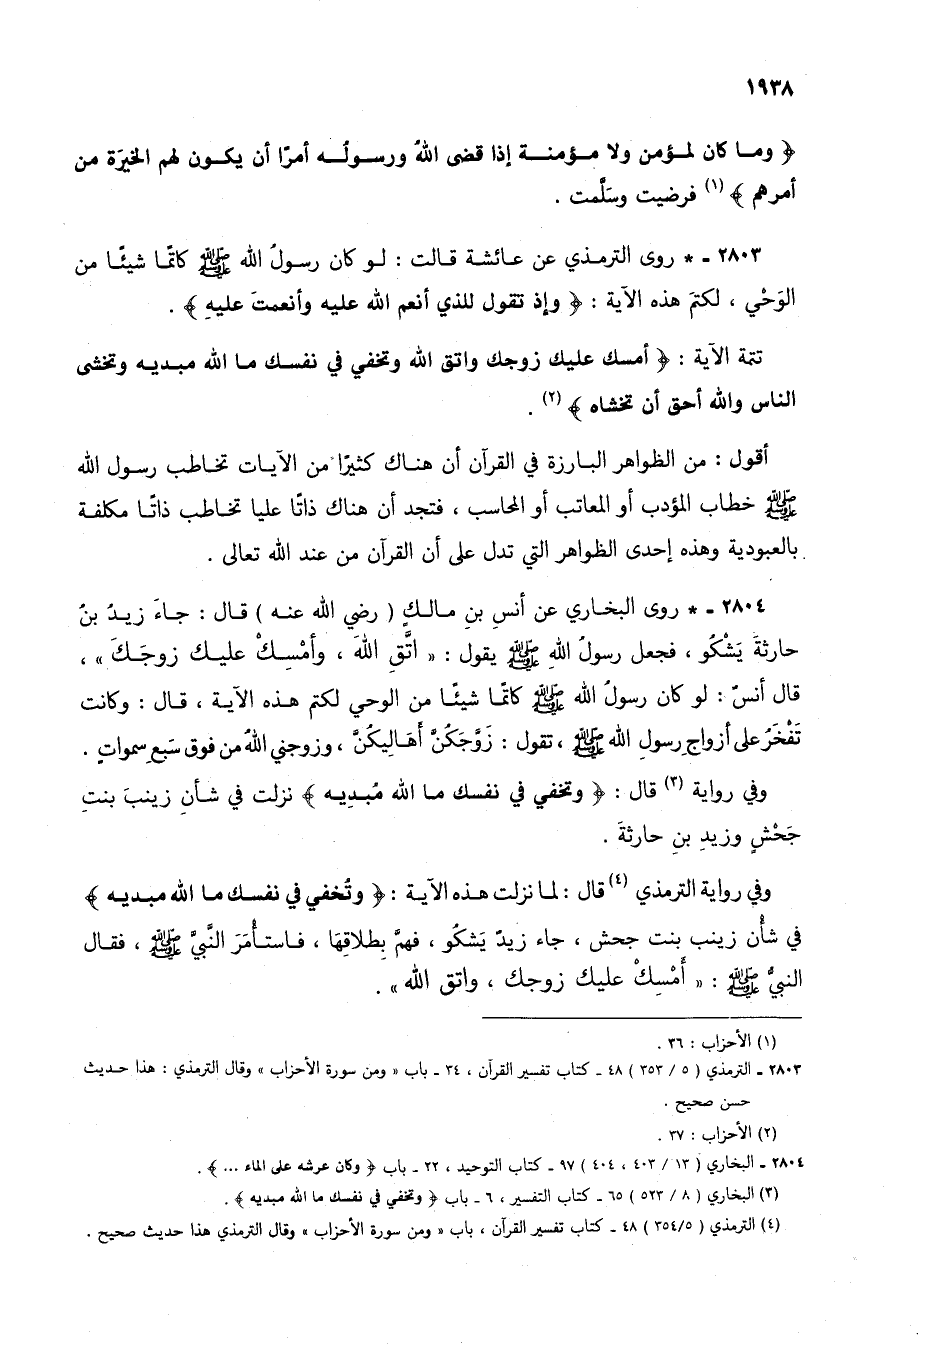 ١٩٣٨
﴿ وما كان لمؤمن ولا مؤمنة إذا قضى اللهُ ورسولُه أمرًا أن يكون لهم الخيرَة من
أمرهم ﴾ (١) فرضيت وسَلَّمت .
٢٨٠٣ ـ * روى الترمذي عن عائشة قالت : لو كان رسولُ الله ﷺ كاتمًا شيئًا من
الوَحْي ، لكتمَ هذه الآية : ﴿ وإذ تقول للذي أنعم الله عليه وأنعمتَ عليهِ ﴾ .
تتمة الآية : ﴿ أمسك عليك زوجك واتق الله وتخفي في نفسك ما الله مبديه وتخشى
الناس والله أحق أن تخشاه ﴾ (٢) .
أقول : من الظواهر البارزة في القرآن أن هناك كثيرًا من الآيات تخاطب رسول الله
ﷺ خطاب المؤدب أو المعاتب أو المحاسب ، فتجد أن هناك ذاتًا عليا تخاطب ذاتًا مكلفة
بالعبودية وهذه إحدى الظواهر التي تدل على أن القرآن من عند الله تعالى .
٢٨٠٤ ـ * روى البخاري عن أنسِ بنِ مالكٍ ( رضي الله عنه ) قال : جاءَ زيدُ بنُ
حارثةَ يَشْكُو ، فجعل رسولُ اللهِ ﷺ يقول : « اتَّقِ اللهَ ، وأمْسِكْ عليك زوجَكَ » ،
قال أنسٌ : لو كان رسولُ الله ﷺ كاتمًا شيئًا من الوحي لكتم هذه الآية ، قال : وكانت
تَفْخَرُ على أزواجِ رسولِ الله ﷺ ، تقول : زَوَّجَكُنَّ أَهَاليكُنَّ ، وزوجني اللهُ من فوق سَبعِ سمواتٍ .
وفي رواية (٣) قال : ﴿ وتخفي في نفسك ما الله مُبديه ﴾ نزلت في شأنِ زينبَ بنتِ
جَحْشٍ وزيدِ بنِ حارثةَ .
وفي رواية الترمذي (٤) قال : لما نزلت هذه الآية : ﴿ وتُخفي في نفسك ما الله مبديه ﴾
في شأْن زينب بنت جحش ، جاء زيدٌ يَشكُو ، فهمَّ بِطلاقِهَا ، فاستأْمَرَ النَّبيَّ ﷺ ، فقال
النبيُّ ﷺ : « أَمْسِكْ عليك زوجك ، واتق الله » .
(١) الأحزاب : ٣٦ .
٢٨٠٣ ـ الترمذي ( ٥ / ٣٥٣ ) ٤٨ ـ كتاب تفسير القرآن ، ٣٤ ـ باب « ومن سورة الأحزاب » وقال الترمذي : هذا حديث
حسن صحيح .
(٢) الأحزاب : ٣٧ .
٢٨٠٤ ـ البخاري ( ١٣ / ٤٠٣ ، ٤٠٤ ) ٩٧ ـ كتاب التوحيد ، ٢٢ ـ باب ﴿ وكان عرشه على الماء ... ﴾ .
(٣) البخاري ( ٨ / ٥٢٣ ) ٦٥ ـ كتاب التفسير ، ٦ ـ باب ﴿ وتخفي في نفسك ما الله مبديه ﴾ .
(٤) الترمذي ( ٣٥٤/٥ ) ٤٨ ـ كتاب تفسير القرآن ، باب « ومن سورة الأحزاب » وقال الترمذي هذا حديث صحيح .